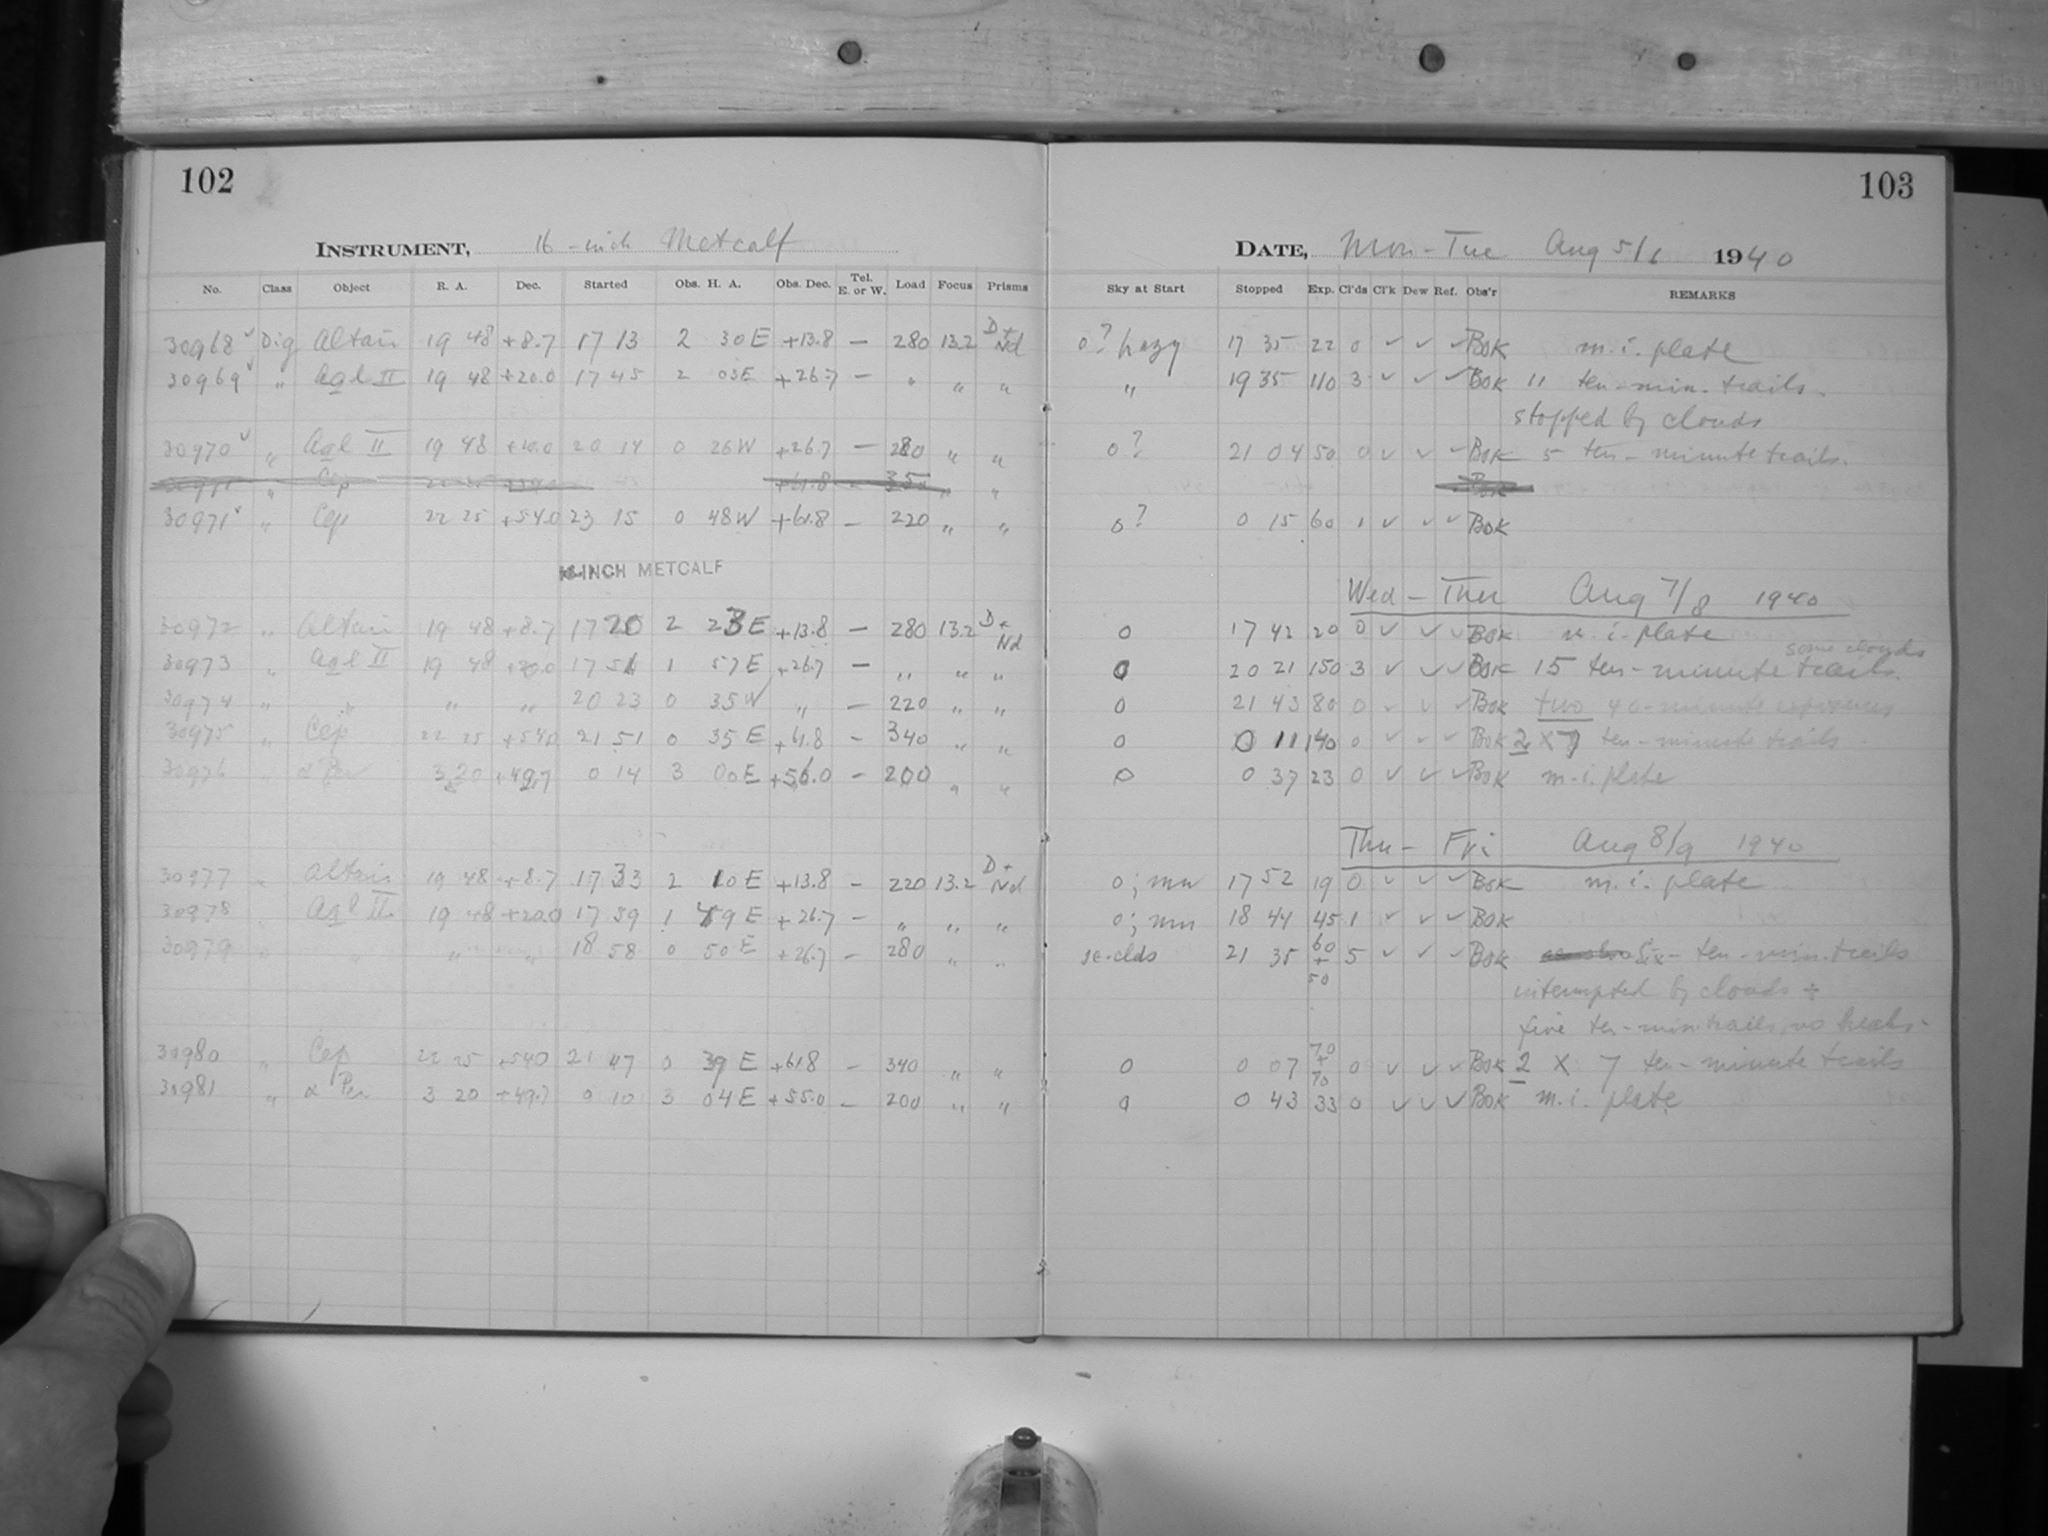 102
INSTRUMENT, 16-inch Metcalf
No. Class Object R. A. Dec. Started Obs. H. A. Obs. Dec. Tel. E. or W. Load Focus Prisms
30968 Dig Altair 19 48 +8.7 17 13 2 30 E +13.8 — 280 13.2 D+ Nd
30969 " Aql II 19 48 +20.0 17 45 2 03 E +26.7 — " " "
30970 " Aql II 19 48 +20.0 20 14 0 26 W +26.7 — 280 " "
" Cep +61.8 — 350 " "
30971 " Cep 22 25 +54.0 23 15 0 48 W +61.8 — 220 " "
16-INCH METCALF
30972 " Altair 19 48 +8.7 17 20 2 23 E +13.8 — 280 13.2 D+ Nd
30973 " Aql II 19 48 +20.0 17 51 1 57 E +26.7 — " " "
30974 " " " " 20 23 0 35 W " — 220 " "
30975 " Cep 22 25 +54.0 21 51 0 35 E +61.8 — 340 " "
30976 " α Per 3 20 +49.7 0 14 3 00 E +56.0 — 200 " "
30977 " Altair 19 48 +8.7 17 33 2 10 E +13.8 — 220 13.2 D+ Nd
30978 " Aql II 19 48 +20.0 17 59 1 49 E +26.7 — " " "
30979 " " " " 18 58 0 50 E +26.7 — 280 " "
30980 " Cep 22 25 +54.0 21 47 0 39 E +61.8 — 340 " "
30981 " α Per 3 20 +49.7 0 10 3 04 E +55.0 — 200 " "
103
DATE, Mon-Tue Aug 5/6 1940
Sky at Start Stopped Exp. Cl'ds Cl'k Dew Ref. Obs'r REMARKS
0? hazy 17 35 22 0 ✓ ✓ ✓ BOK m.i. plate
" 19 35 110 3 ✓ ✓ ✓ BOK 11 ten-min. trails.
stopped by clouds
0? 21 04 50 0 ✓ ✓ ✓ BOK 5 ten-minute trails.
BOK
0? 0 15 60 1 ✓ ✓ ✓ BOK
Wed - Thu Aug 7/8 1940
0 17 42 20 0 ✓ ✓ ✓ BOK m.i. plate
some clouds
0 20 21 150 3 ✓ ✓ ✓ BOK 15 ten-minute trails.
0 21 43 80 0 ✓ ✓ ✓ BOK two 40-minute exposures
0 0 11 140 0 ✓ ✓ ✓ BOK 2 X 7 ten-minute trails
0 0 37 23 0 ✓ ✓ ✓ BOK m.i. plate
Thu - Fri Aug 8/9 1940
0; mn 17 52 19 0 ✓ ✓ ✓ BOK m.i. plate
0; mn 18 44 45 1 ✓ ✓ ✓ BOK
sc. clds 21 35 60 + 50 5 ✓ ✓ ✓ BOK Six- ten-min. trails
interrupted by clouds +
five ten-min trails, no breaks.
0 0 07 70 + 70 0 ✓ ✓ ✓ BOK 2 X 7 ten-minute trails
0 0 43 33 0 ✓ ✓ ✓ BOK m.i. plate